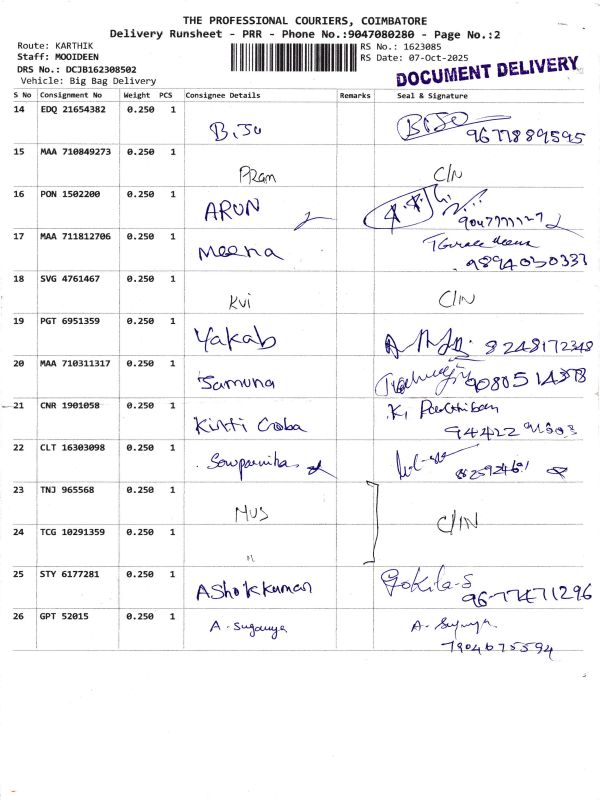 THE PROFESSIONAL COURIERS, COIMBATORE
Delivery Runsheet - PRR - Phone No.:9047080280 - Page No.:2
Route: KARTHIK
RS No.: 1623085
Staff: MOOIDEEN
RS Date: 07-Oct-2025
DRS No.: DCJB162308502
Vehicle: Big Bag Delivery
DOCUMENT DELIVERY
S No Consignment No Weight PCS Consignee Details Remarks Seal & Signature
14 EDQ 21654382 0.250 1
Biju 9677889595
15 MAA 710849273 0.250 1
C/N
16 PON 1502200 0.250 1
ARUN
17 MAA 711812706 0.250 1
Meena 9894030337
18 SVG 4761467 0.250 1
KVi C/N
19 PGT 6951359 0.250 1
Yakab 8248172348
20 MAA 710311317 0.250 1
Jamuna
21 CNR 1901058 0.250 1
K. Parthiban
22 CLT 16303098 0.250 1
Sowparnika
23 TNJ 965568 0.250 1
MUS C/IN
24 TCG 10291359 0.250 1
25 STY 6177281 0.250 1
Ashokkumar Gokila-S
9677471296
26 GPT 52015 0.250 1
A. Suganya
7904675594